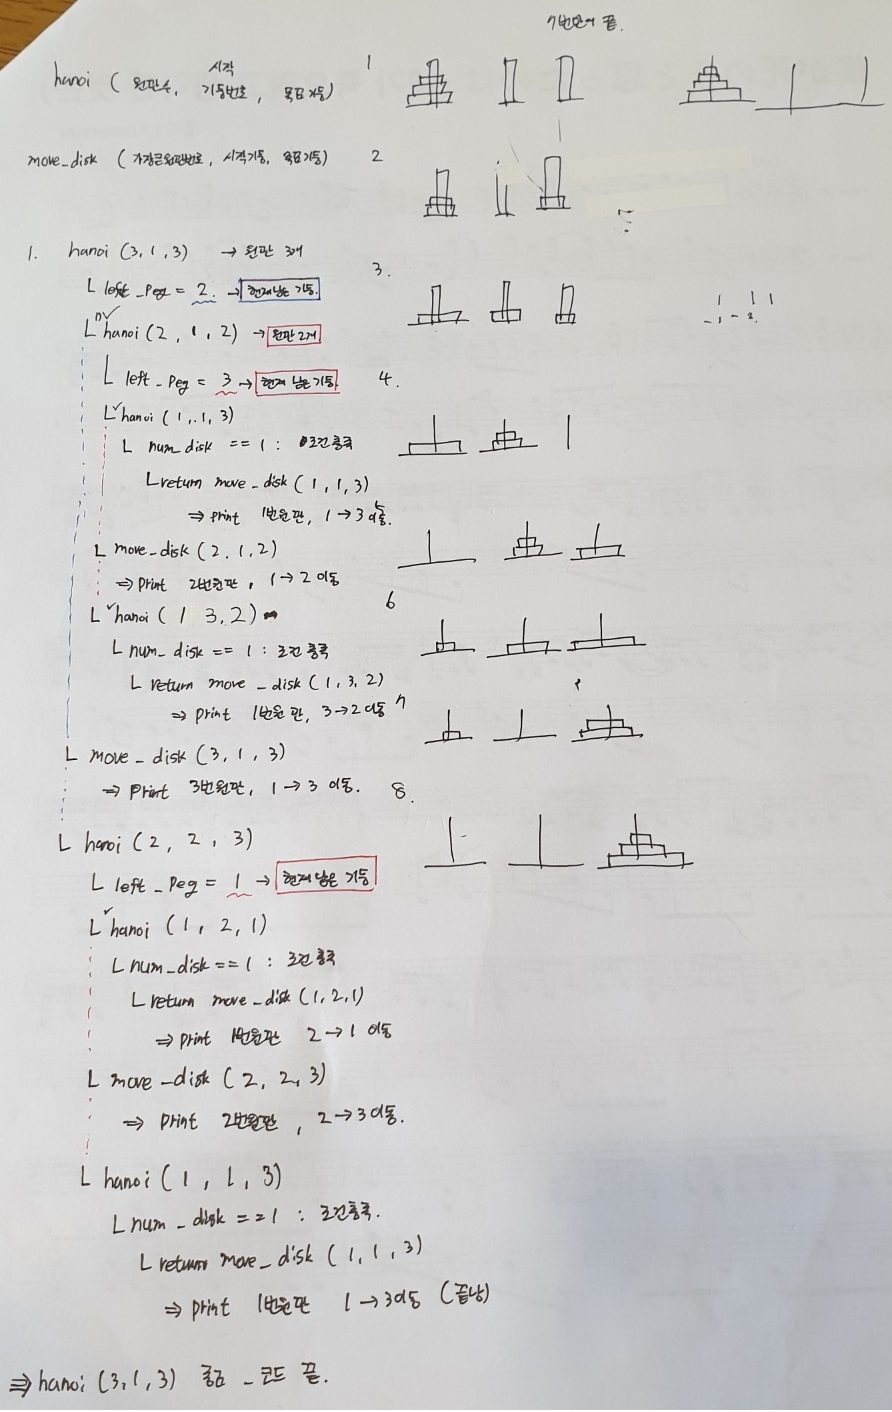 7번만에 끝.
hanoi ( 원판수, 시작 기둥번호, 목표기둥)
move_disk ( 가장큰원판번호, 시작기둥, 목표기둥)
1
2
3.
4.
6
7
8.
1. hanoi (3, 1, 3) → 원판 3개
L left_peg = 2. → 현재남은 기둥.
L hanoi (2, 1, 2) → 원판 2개
L left_peg = 3 → 현재 남은 기둥.
L hanoi (1, 1, 3)
L num_disk == 1 : 조건충족
L return move_disk (1, 1, 3)
⇒ print 1번원판, 1 → 3 이동.
L move_disk (2, 1, 2)
⇒ print 2번원판, 1 → 2 이동
L hanoi ( 1 3, 2)
L num_disk == 1 : 조건 충족
L return move_disk (1, 3, 2)
⇒ print 1번원판, 3 → 2 이동
L move_disk (3, 1, 3)
⇒ print 3번원판, 1 → 3 이동.
L hanoi (2, 2, 3)
L left_peg = 1 → 현재남은 기둥
L hanoi (1, 2, 1)
L num_disk == 1 : 조건충족
L return move_disk (1, 2, 1)
⇒ print 1번원판 2 → 1 이동
L move_disk (2, 2, 3)
⇒ print 2번원판, 2 → 3 이동.
L hanoi (1, 1, 3)
L num_disk == 1 : 조건충족.
L return move_disk (1, 1, 3)
⇒ print 1번원판 1 → 3 이동 (끝남)
⇒ hanoi (3, 1, 3) 종료 - 코드 끝.